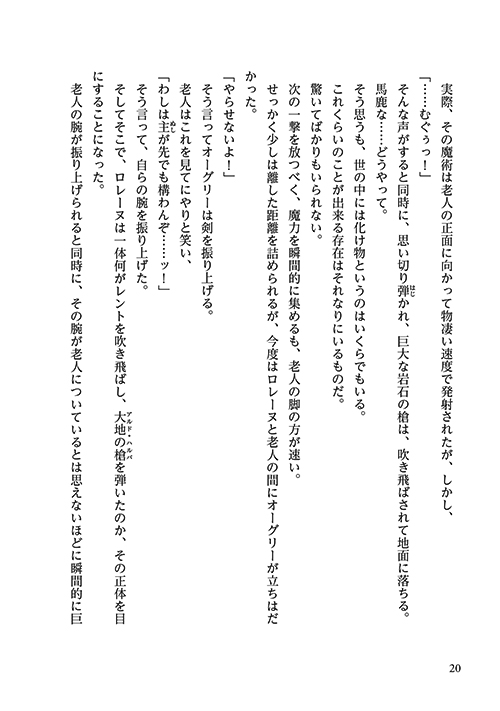 実際、その魔術は老人の正面に向かって物凄い速度で発射されたが、しかし、
「……むぐぅっ！」
そんな声がすると同時に、思い切り弾かれ、巨大な岩石の槍は、吹き飛ばされて地面に落ちる。
馬鹿な……どうやって。
そう思うも、世の中には化け物というのはいくらでもいる。
これくらいのことが出来る存在はそれなりにいるものだ。
驚いてばかりもいられない。
次の一撃を放つべく、魔力を瞬間的に集めるも、老人の脚の方が速い。
せっかく少しは離した距離を詰められるが、今度はロレーヌと老人の間にオーグリーが立ちはだ
かった。
「やらせないよ！」
そう言ってオーグリーは剣を振り上げる。
老人はこれを見てにやりと笑い、
「わしは主が先でも構わんぞ……ッ！」
そう言って、自らの腕を振り上げた。
そしてそこで、ロレーヌは一体何がレントを吹き飛ばし、大地の槍を弾いたのか、その正体を目
にすることになった。
老人の腕が振り上げられると同時に、その腕が老人についているとは思えないほどに瞬間的に巨
20